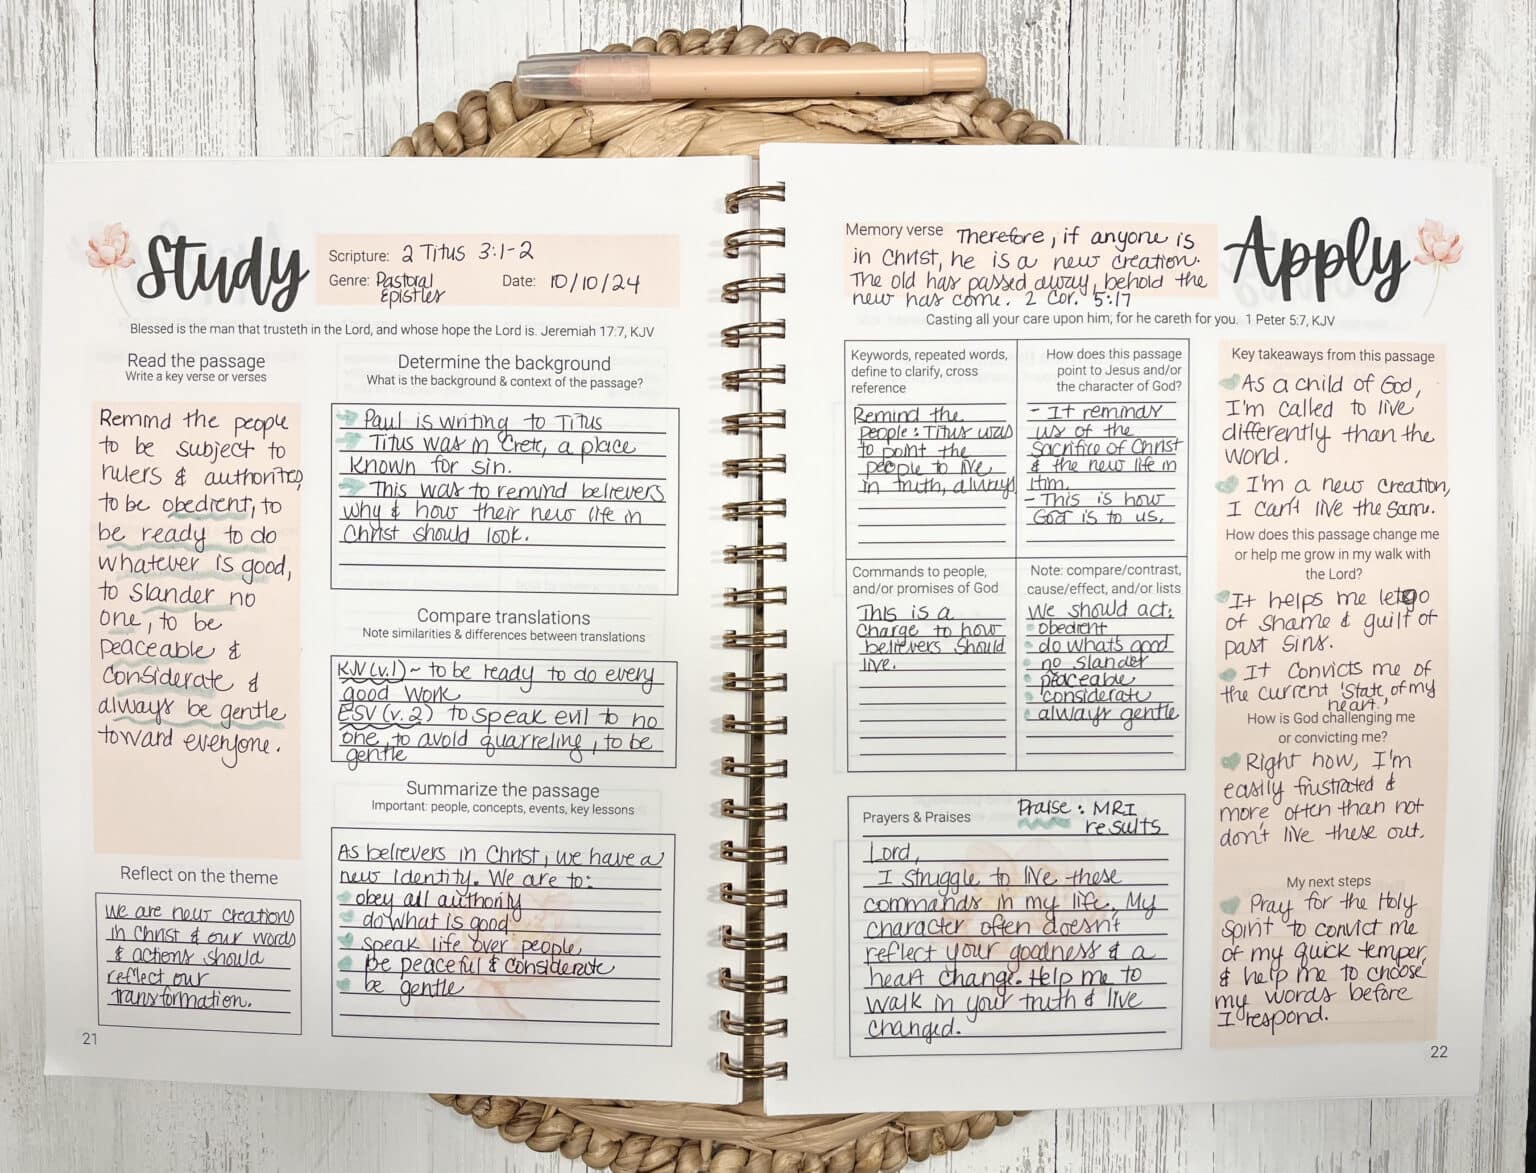 Study
Scripture: 2 Titus 3:1-2
Genre: Pastoral
Epistles
Date: 10/10/24
Blessed is the man that trusteth in the Lord, and whose hope the Lord is. Jeremiah 17:7, KJV
Read the passage
Write a key verse or verses
Remind the people
to be subject to
rulers & authorities,
to be obedient, to
be ready to do
whatever is good,
to slander no
one, to be
peaceable &
considerate &
always be gentle
toward everyone.
Reflect on the theme
We are new creations
in Christ & our words
& actions should
reflect our
transformation.
21
Determine the background
What is the background & context of the passage?
Paul is writing to Titus
Titus was in Crete, a place
known for sin.
This was to remind believers
why & how their new life in
Christ should look.
Compare translations
Note similarities & differences between translations
KJV (v.1) ~ to be ready to do every
good work
ESV (v. 2) to speak evil to no
one, to avoid quarreling, to be
gentle
Summarize the passage
Important: people, concepts, events, key lessons
As believers in Christ, we have a
new identity. We are to:
obey all authority
do what is good
speak life over people
be peaceful & considerate
be gentle
Memory verse Therefore, if anyone is
in Christ, he is a new creation.
The old has passed away, behold the
new has come. 2 Cor. 5:17
Apply
Casting all your care upon him; for he careth for you. 1 Peter 5:7, KJV
Keywords, repeated words,
define to clarify, cross
reference
Remind the
people: Titus was
to point the
people to live
in truth, always
How does this passage
point to Jesus and/or
the character of God?
- It reminds
us of the
sacrifice of Christ
& the new life in
Him.
- This is how
God is to us.
Commands to people,
and/or promises of God
This is a
charge to how
believers should
live.
Note: compare/contrast,
cause/effect, and/or lists
We should act:
obedient
do whats good
no slander
peaceable
considerate
always gentle
Prayers & Praises
Praise: MRI
results
Lord,
I struggle to live these
commands in my life. My
character often doesn't
reflect your goodness & a
heart change. Help me to
walk in your truth & live
changed.
Key takeaways from this passage
As a child of God,
I'm called to live
differently than the
world.
I'm a new creation,
I can't live the same.
How does this passage change me
or help me grow in my walk with
the Lord?
It helps me let go
of shame & guilt of
past sins.
It convicts me of
the current 'state of my
heart.'
How is God challenging me
or convicting me?
Right now, I'm
easily frustrated &
more often than not
don't live these out.
My next steps
Pray for the Holy
spirit to convict me
of my quick temper,
& help me to choose
my words before
I respond.
22